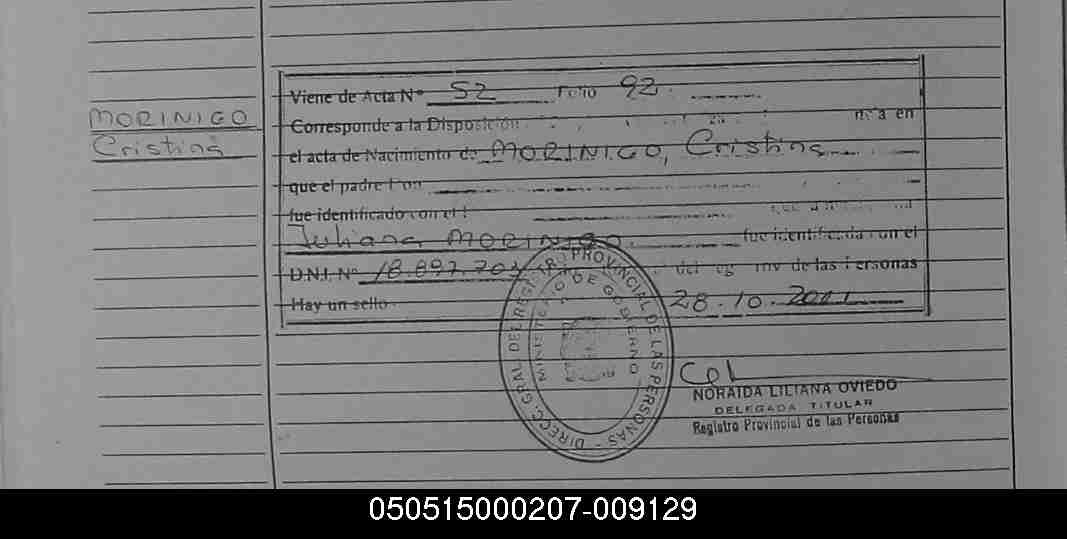 MORINIGO
Cristina
Viene de Acta Nº 52 Folio 92
Corresponde a la Disposición
en
el acta de Nacimiento de MORINIGO, Cristina
que el padre
fue identificado con el
Juliana MORINIGO fue identificada con el
D.N.I. Nº 18.897.703 del de las Personas
Hay un sello 28.10.2001
DIRECC. GRAL. DEL REGISTRO PROVINCIAL DE LAS PERSONAS -
MINISTERIO DE GOBIERNO
NORAIDA LILIANA OVIEDO
DELEGADA TITULAR
Registro Provincial de las Personas
050515000207-009129